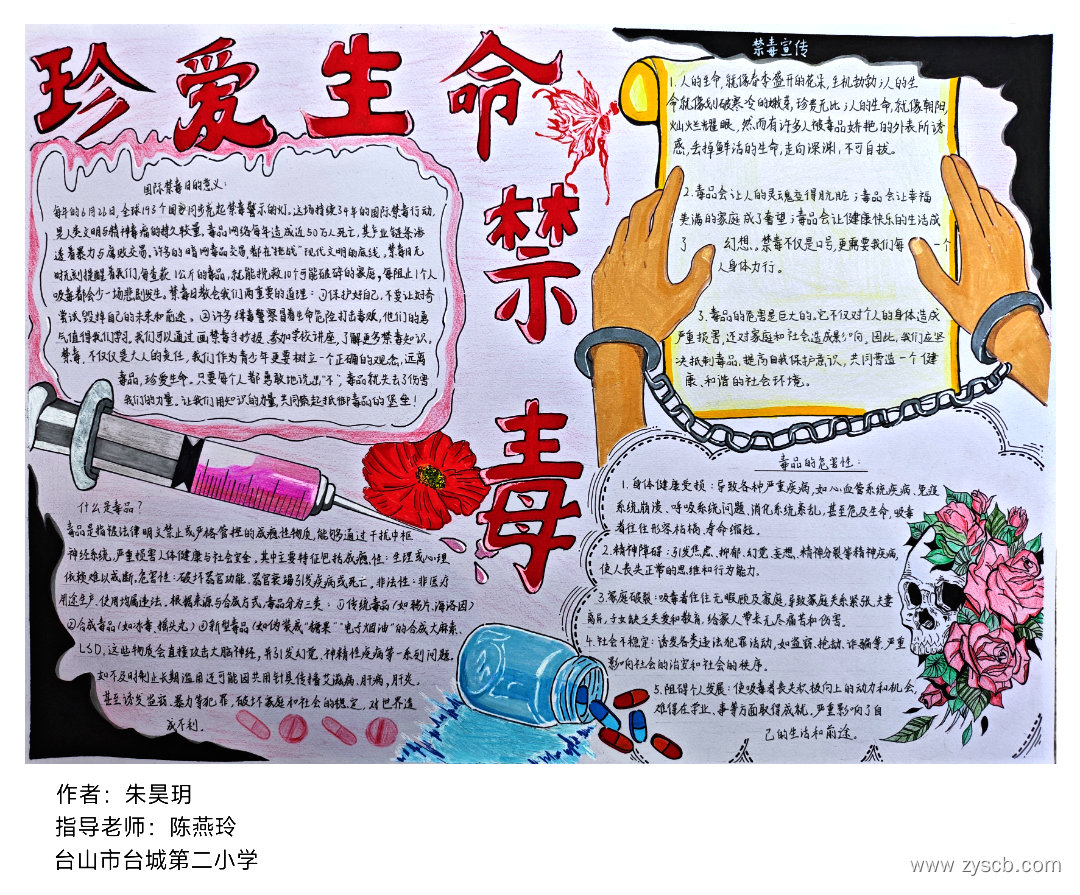 珍爱生命
禁毒
国际禁毒日的意义:
每年的6月26日,全球193个国家同步亮起禁毒警示的灯。这场持续34年的国际禁毒行动,
是人类文明与精神毒瘤的持久较量。毒品网络每年造成近50万人死亡,其产业链条渗
透着暴力与腐败交易。许多的暗网毒品交易,都在"挑战"现代文明的底线。禁毒日无
时无刻提醒着我们,每查获1公斤的毒品,就能挽救10个可能破碎的家庭。每阻止1个人
吸毒都会少一场悲剧发生。禁毒日教会我们两重要的道理:①保护好自己,不要让好奇
尝试毁掉自己的未来和前途。②许多缉毒警察冒着生命危险打击毒贩,他们的勇
气值得我们学习。我们可以通过画禁毒手抄报、参加学校讲座,了解更多禁毒知识。
禁毒,不仅仅是大人的责任,我们作为青少年更要树立一个正确的观念,远离
毒品,珍爱生命。只要每个人都勇敢地说出"不",毒品就失去了伤害
我们的力量。让我们用知识的力量,共同筑起抵御毒品的堡垒!
什么是毒品?
毒品是指被法律明文禁止或严格管控的成瘾性物质,能够通过干扰中枢
神经系统,严重损害人体健康与社会安全。其中主要特征包括成瘾性:生理或心理
依赖难以戒断。危害性:破坏器官功能、器官衰竭引发疾病或死亡。非法性:非医疗
用途生产、使用均属违法。根据来源与合成方式,毒品分为三类:①传统毒品(如鸦片、海洛因)
②合成毒品(如冰毒、摇头丸)③新型毒品(如伪装成"糖果""电子烟油"的合成大麻素、
LSD,这些物质会直接攻击大脑神经,并引发幻觉、神精性疾病等一系列问题。
如不及时制止长期滥用还可能因共用针具传播艾滋病、肝病,肝炎。
甚至诱发盗窃、暴力等犯罪,破坏家庭和社会的稳定,对世界造
成不利。
禁毒宣传
1.人的生命,就像春季盛开的花朵,生机勃勃;人的生
命就像划破寒冷的嫩芽,珍贵无比;人的生命,就像朝阳,
灿烂耀眼,然而有许多人被毒品娇艳的外表所诱
惑,丢掉鲜活的生命,走向深渊,不可自拔。
2.毒品会让人的灵魂变得肮脏;毒品会让幸福
美满的家庭成了奢望;毒品会让健康快乐的生活成
了 幻想。禁毒不仅是口号,更需要我们每 一个
人身体力行。
3.毒品的危害是巨大的,它不仅对个人的身体造成
严重损害,还对家庭和社会造成影响,因此,我们应坚
决抵制毒品,提高自我保护意识,共同营造一个健
康、和谐的社会环境。
毒品的危害性:
1.身体健康受损:导致各种严重疾病,如心血管系统疾病、免疫
系统崩溃、呼吸系统问题、消化系统紊乱,甚至危及生命,吸毒
者往往形容枯槁、寿命缩短。
2.精神障碍:引发焦虑、抑郁、幻觉、妄想、精神分裂等精神疾病,
使人丧失正常的思维和行为能力。
3.家庭破裂:吸毒者往往无暇顾及家庭,导致家庭关系紧张、夫妻
离异、子女缺乏关爱和教育,给家人带来无尽痛苦和伤害。
4.社会不稳定:诱发各类违法犯罪活动,如盗窃、抢劫、诈骗等,严重
影响社会的治安和社会的秩序。
5.阻碍个人发展:使吸毒者丧失积极向上的动力和机会,
难得在学业、事等方面取得成就,严重影响了自
己的生活和前途。
作者:朱昊玥
指导老师:陈燕玲
台山市台城第二小学
www.zyscb.com